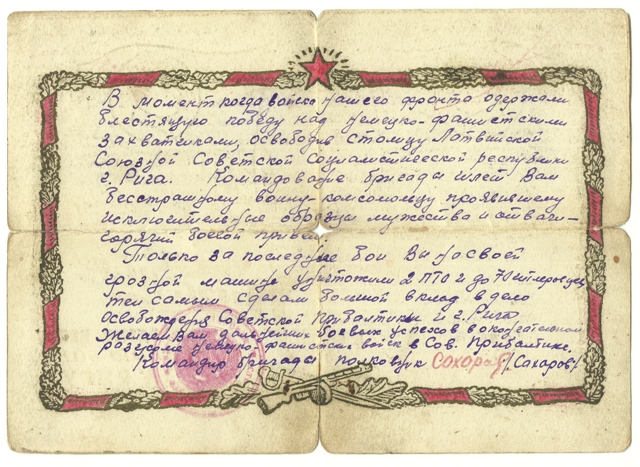 В момент когда войско нашего фронта одержали
блестящую победу над немецко-фашистскими
захватчиками, освободив столицу Латвийской
Союзной Советской Социалистической республики
г. Рига. Командование бригады шлет Вам
бесстрашному воину-комсомольцу проявившему
исключительные образцы мужества и отваги-
горячий боевой привет
Только за последние бои Вы на своей
грозной машине уничтожили 2 ПТО и до 70 гитлеровцев
тем самым сделали большой вклад в дело
освобождения Советской Прибалтики и г. Рига
Желаем Вам дальнейших боевых успехов в окончательном
разгроме немецко-фашистских войск в Сов. Прибалтике.
Командир бригады полковник Сахаров /Сахаров/